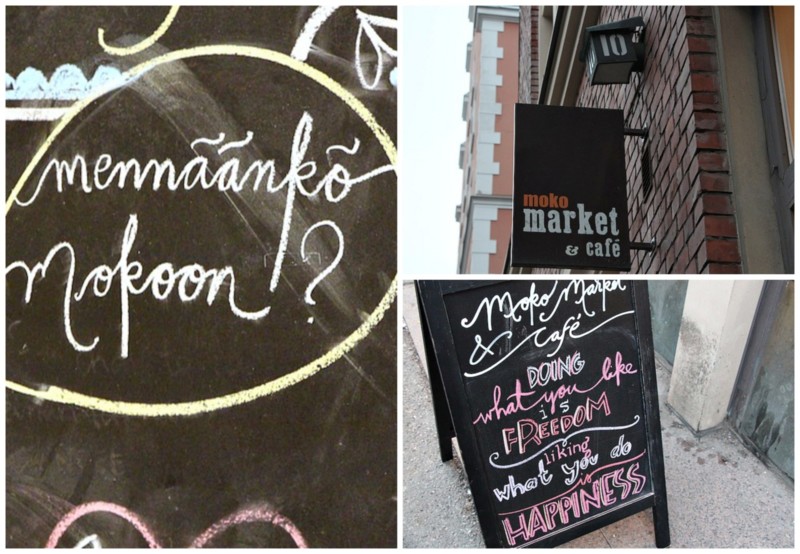 mennäänkö
Mokoon?
10
moko
market
& café
Moko Market
& Café
DOING
what you like
is
FREEDOM
liking
what you do
is
HAPPINESS